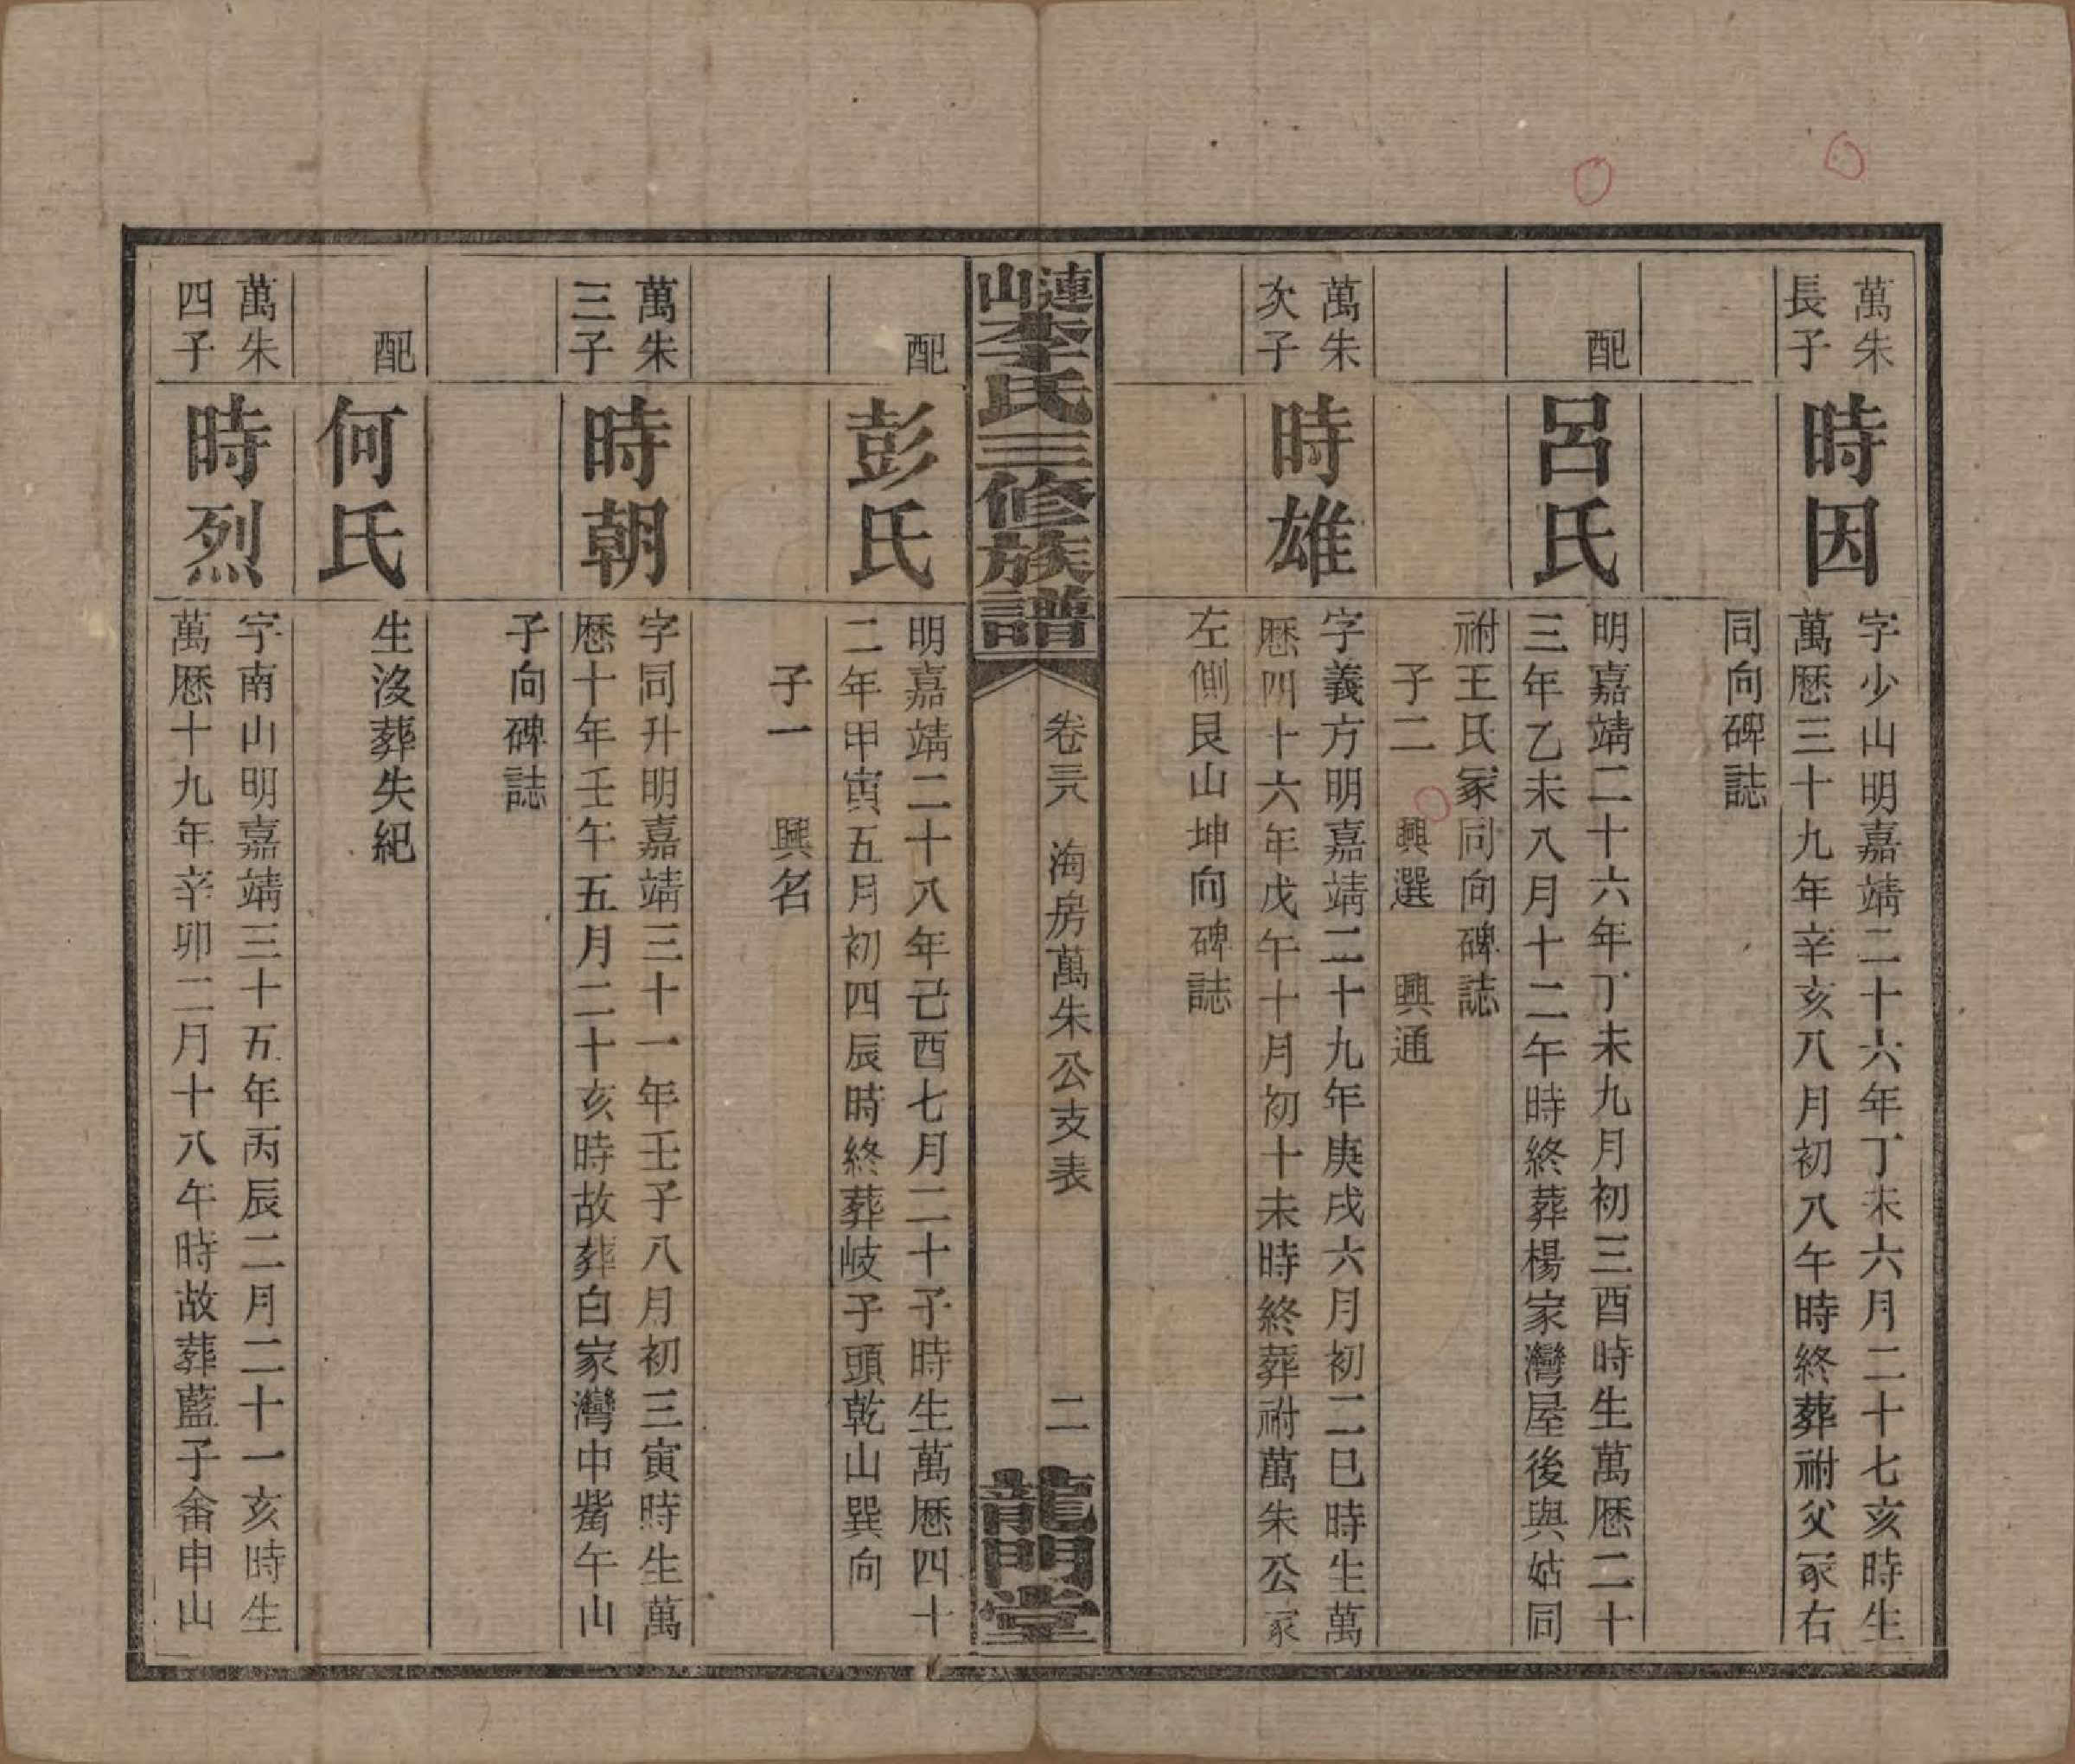 萬朱
長子
時因
字少山明嘉靖二十六年丁未六月二十七亥時生
萬歷三十九年辛亥八月初八午時終葬祔父冢右
同向碑誌
配
呂氏
明嘉靖二十六年丁未九月初三酉時生萬歷二十
三年乙未八月十二午時終葬楊家灣屋後與姑同
祔王氏冢同向碑誌
子二　興選　興通
萬朱
次子
時雄
字義方明嘉靖二十九年庚戌六月初二巳時生萬
歷四十六年戊午十月初十未時終葬祔萬朱公冢
左側艮山坤向碑誌
漣山李氏三修族譜
卷三八　海房萬朱公支表
二
龍門堂
配
彭氏
明嘉靖二十八年己酉七月二十子時生萬歷四十
二年甲寅五月初四辰時終葬岐子頭乾山巽向
子一　興名
萬朱
三子
時朝
字同升明嘉靖三十一年壬子八月初三寅時生萬
歷十年壬午五月二十亥時故葬白家灣中觜午山
子向碑誌
配
何氏
生沒葬失紀
萬朱
四子
時烈
字南山明嘉靖三十五年丙辰二月二十一亥時生
萬歷十九年辛卯二月十八午時故葬藍子畬申山